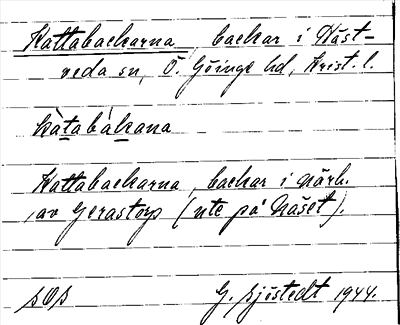 Kattabackarna, backar i Näst-
veda sn, Ö. Göinge hd, Krist. l.
kàtabákana
Kattabackarna, backar i närh.
av Gerastorp (ute på Näset).
sOs G. Sjöstedt 1944.